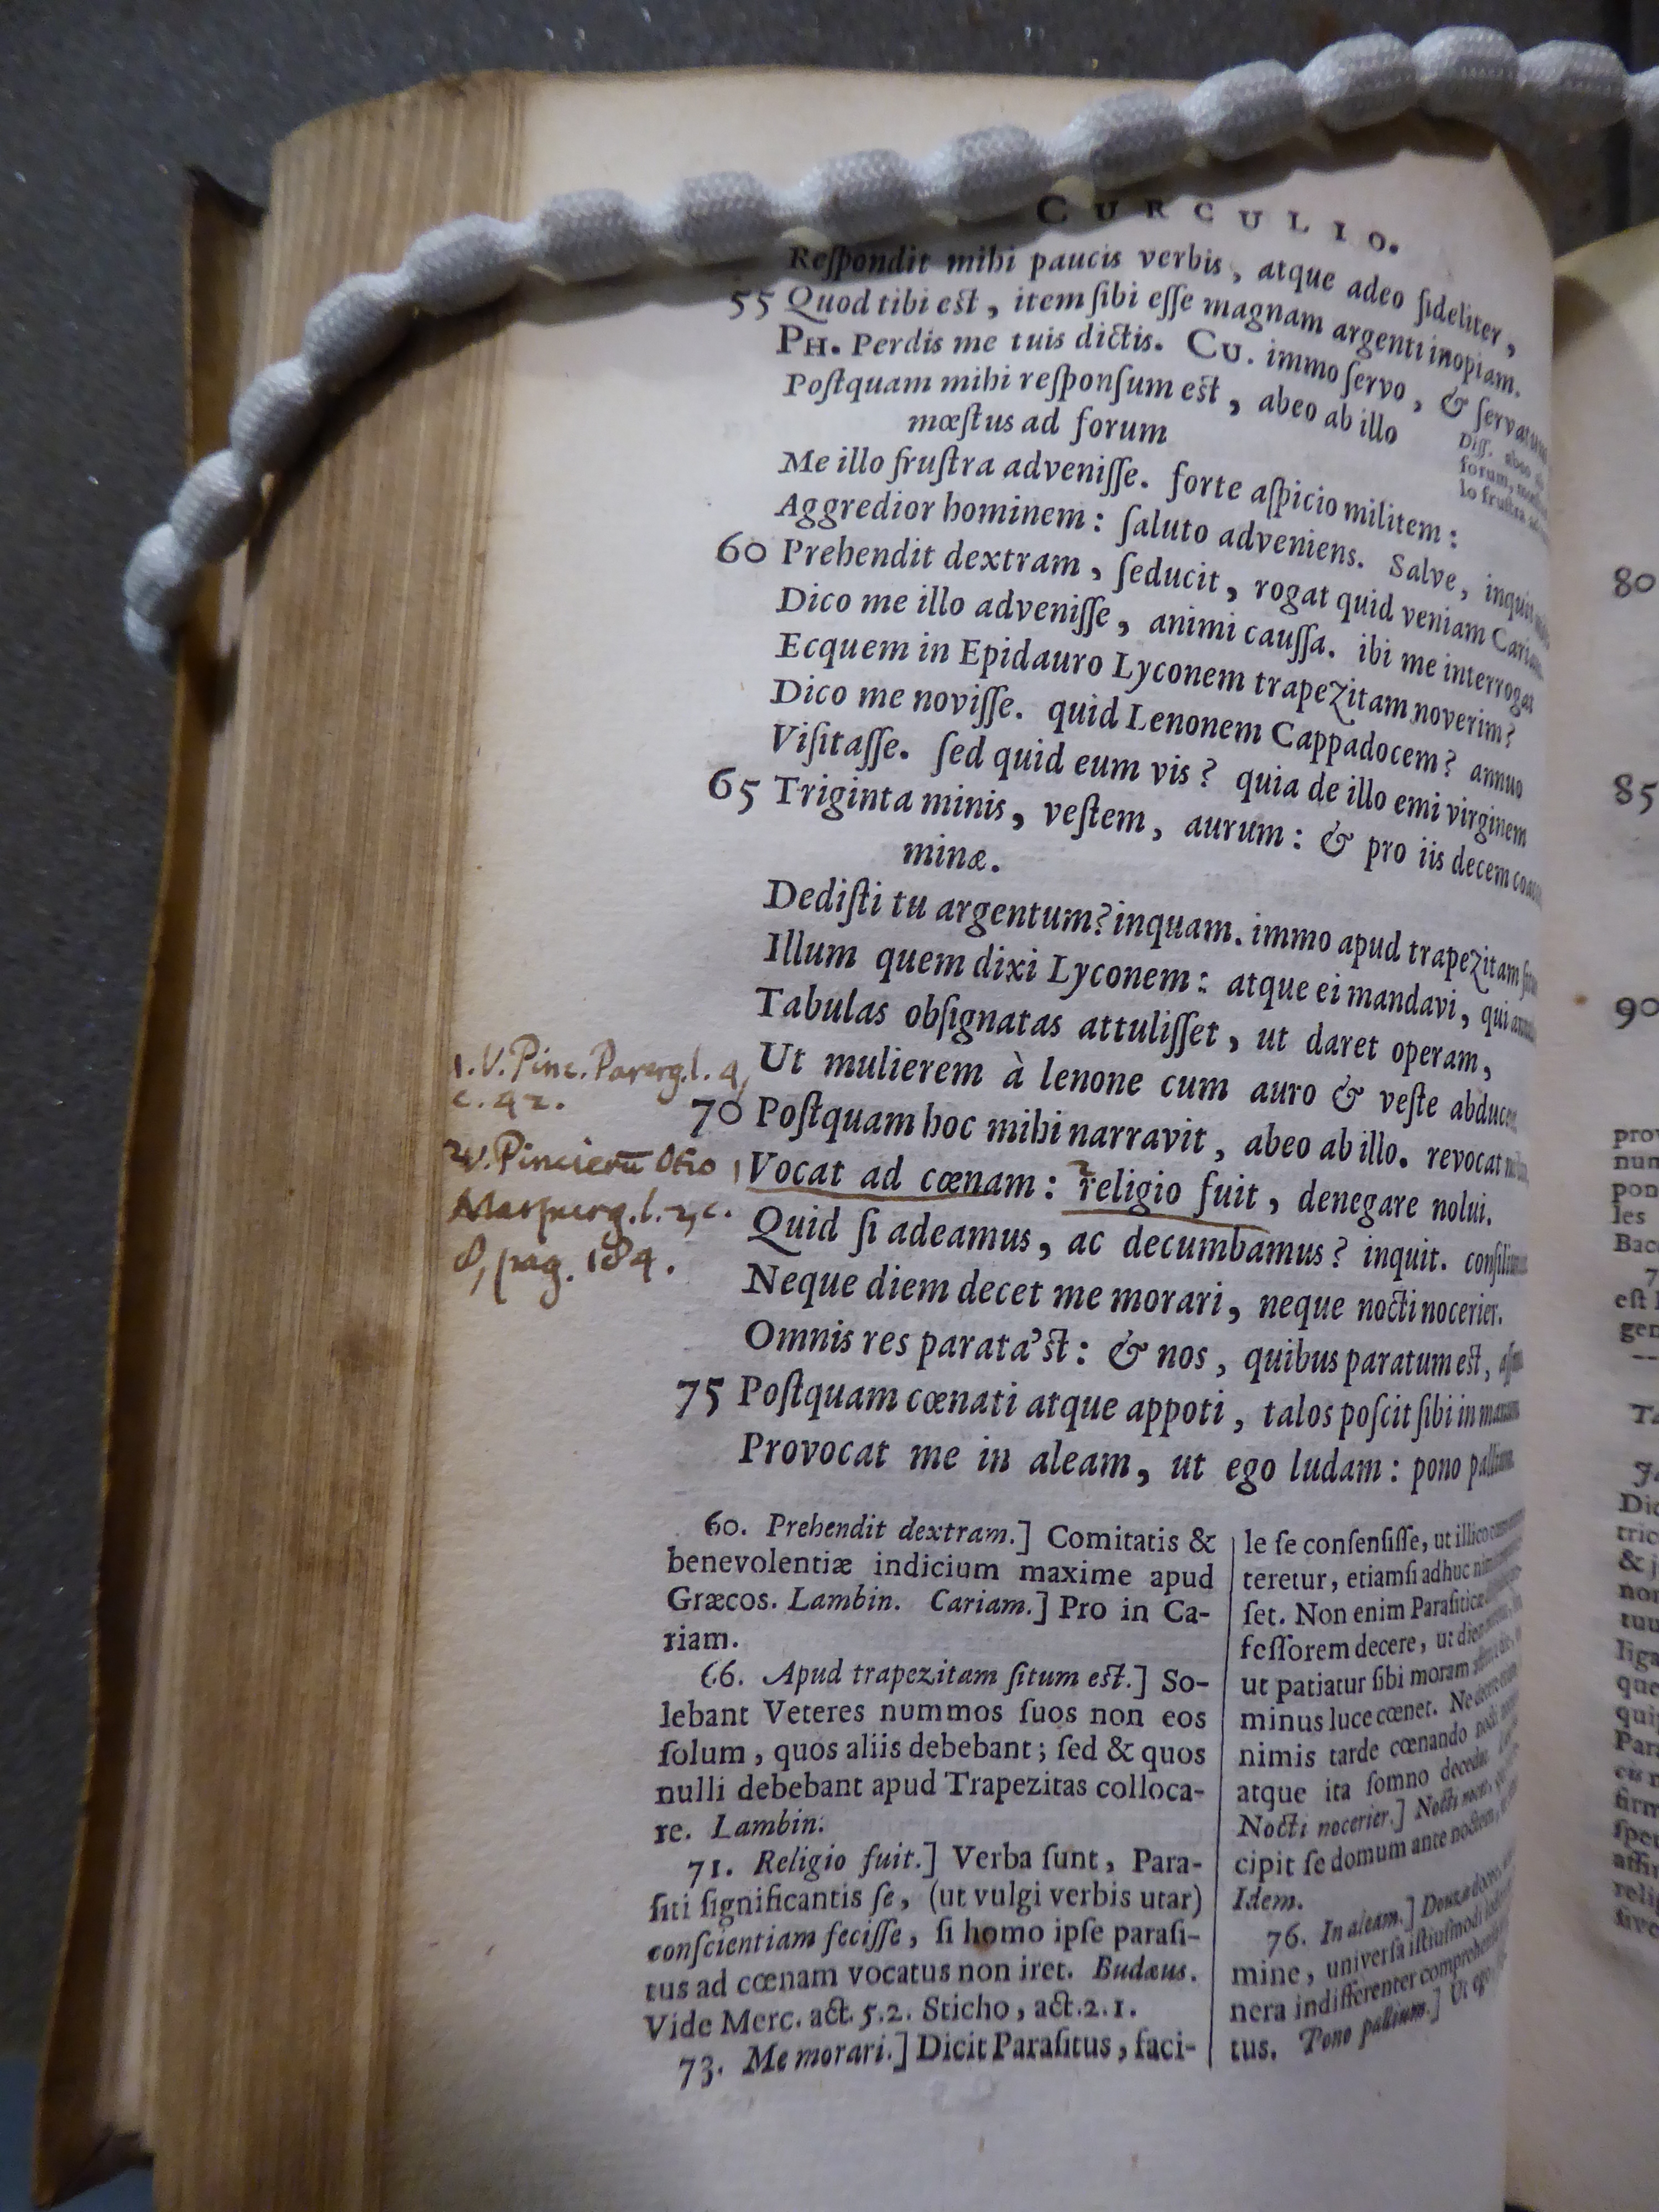 CURCULIO.
Reſpondit mihi paucis verbis, atque adeo fideliter,
55 Quod tibi est, item ſibi eſſe magnam argenti inopiam.
PH. Perdis me tuis dictis. CU. immo ſervo, & ſervatum
Poſtquam mihi reſponſum est, abeo ab illo
mœſtus ad forum
Diſſ. abeo
forum,
lo fruſtra
Me illo fruſtra adveniſſe. forte aſpicio militem:
Aggredior hominem: ſaluto adveniens. Salve, inquit
60 Prehendit dextram, ſeducit, rogat quid veniam Cariam
Dico me illo adveniſſe, animi cauſſa. ibi me interrogat
Ecquem in Epidauro Lyconem trapezitam noverim?
Dico me noviſſe. quid Lenonem Cappadocem? annuo
Viſitaſſe. ſed quid eum vis? quia de illo emi virginem
65 Triginta minis, veſtem, aurum: & pro iis decem
minæ.
Dediſti tu argentum? inquam. immo apud trapezitam
Illum quem dixi Lyconem: atque ei mandavi, qui
Tabulas obſignatas attuliſſet, ut daret operam,
Ut mulierem à lenone cum auro & veſte
1. V. Pinc. Parerg. l. 4,
c. 42.
70 Poſtquam hoc mihi narravit, abeo ab illo. revocat
2 V. Pincierū Otio
Marpurg. l. 2, c.
8, pag. 184.
1 Vocat ad cœnam: 2 religio fuit, denegare nolui.
Quid ſi adeamus, ac decumbamus? inquit.
Neque diem decet me morari, neque nocti nocerier.
Omnis res parata'st: & nos, quibus paratum est,
75 Poſtquam cœnati atque appoti, talos poſcit ſibi in
Provocat me in aleam, ut ego ludam: pono pallium
60. Prehendit dextram.] Comitatis &
benevolentiæ indicium maxime apud
Græcos. Lambin. Cariam.] Pro in Ca-
riam.
66. Apud trapezitam ſitum est.] So-
lebant Veteres nummos ſuos non eos
ſolum, quos aliis debebant; ſed & quos
nulli debebant apud Trapezitas colloca-
re. Lambin.
71. Religio fuit.] Verba ſunt, Para-
ſiti ſignificantis ſe, (ut vulgi verbis utar)
conſcientiam feciſſe, ſi homo ipſe paraſi-
tus ad cœnam vocatus non iret. Budæus.
Vide Merc. act. 5.2. Sticho, act. 2.1.
73. Me morari.] Dicit Paraſitus, faci-
le ſe conſenſiſſe, ut illico
teretur, etiamſi adhuc
ſet. Non enim Paraſitice
feſſorem decere, ut
ut patiatur ſibi moram
minus luce cœnet. Ne
nimis tarde cœnando
atque ita ſomno decedat.
Nocti nocerier.] Nocti
cipit ſe domum ante noctem,
Idem.
76. In aleam.] Douza
mine, univerſa iſtiuſmodi
nera indifferenter
tus. Pono pallium.] Ut ego
80
85
90